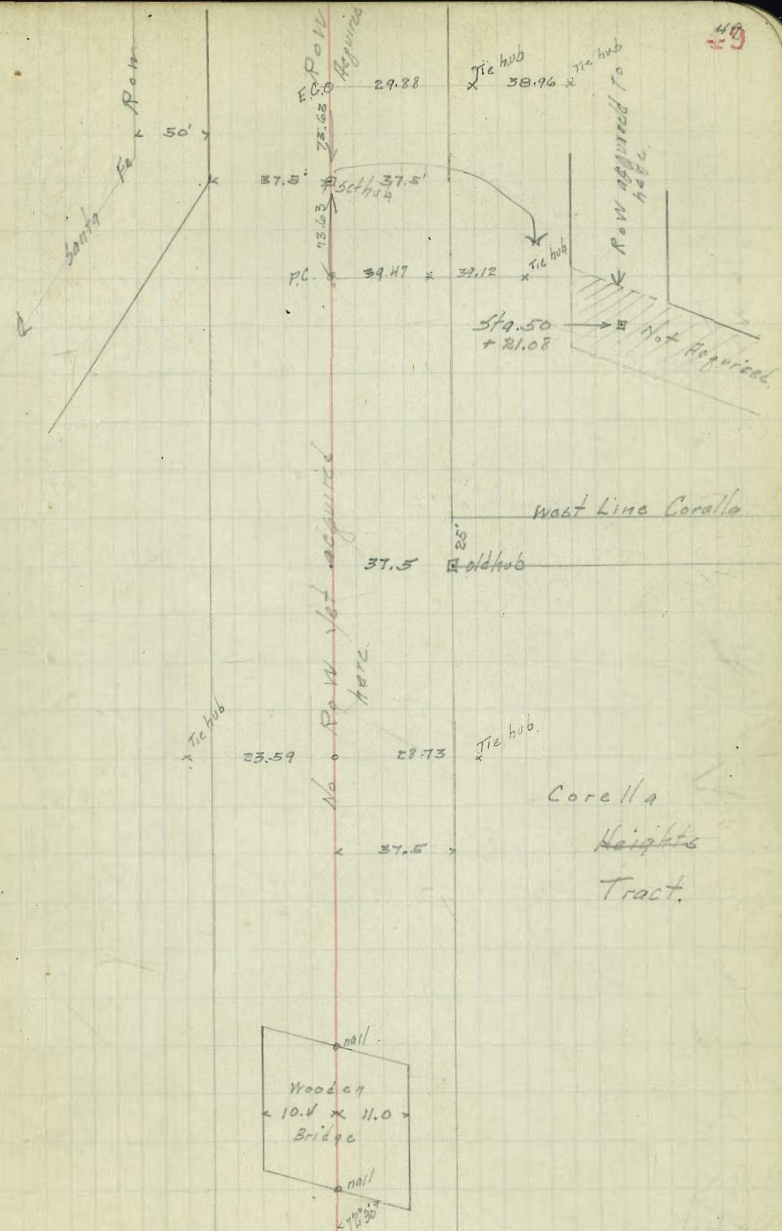 49
Santa Fe Row
50'
Row Acquired
E.C.
29.88
Tie hub
38.96
Tie hub
73.63
37.5'
Set hub
37.5'
73.63
P.C.
39.47
39.12
Tie hub
Row acquired to
here.
Sta. 50
+ 21.08
Not Acquired.
West Line Coralla
25'
37.5
old hub
No Row Yet acquired
here.
Tie hub
23.59
28.73
Tie hub.
Corella
Heights
Tract.
37.5
nail
Wooden
10.4
11.0
Bridge
nail
72°30'